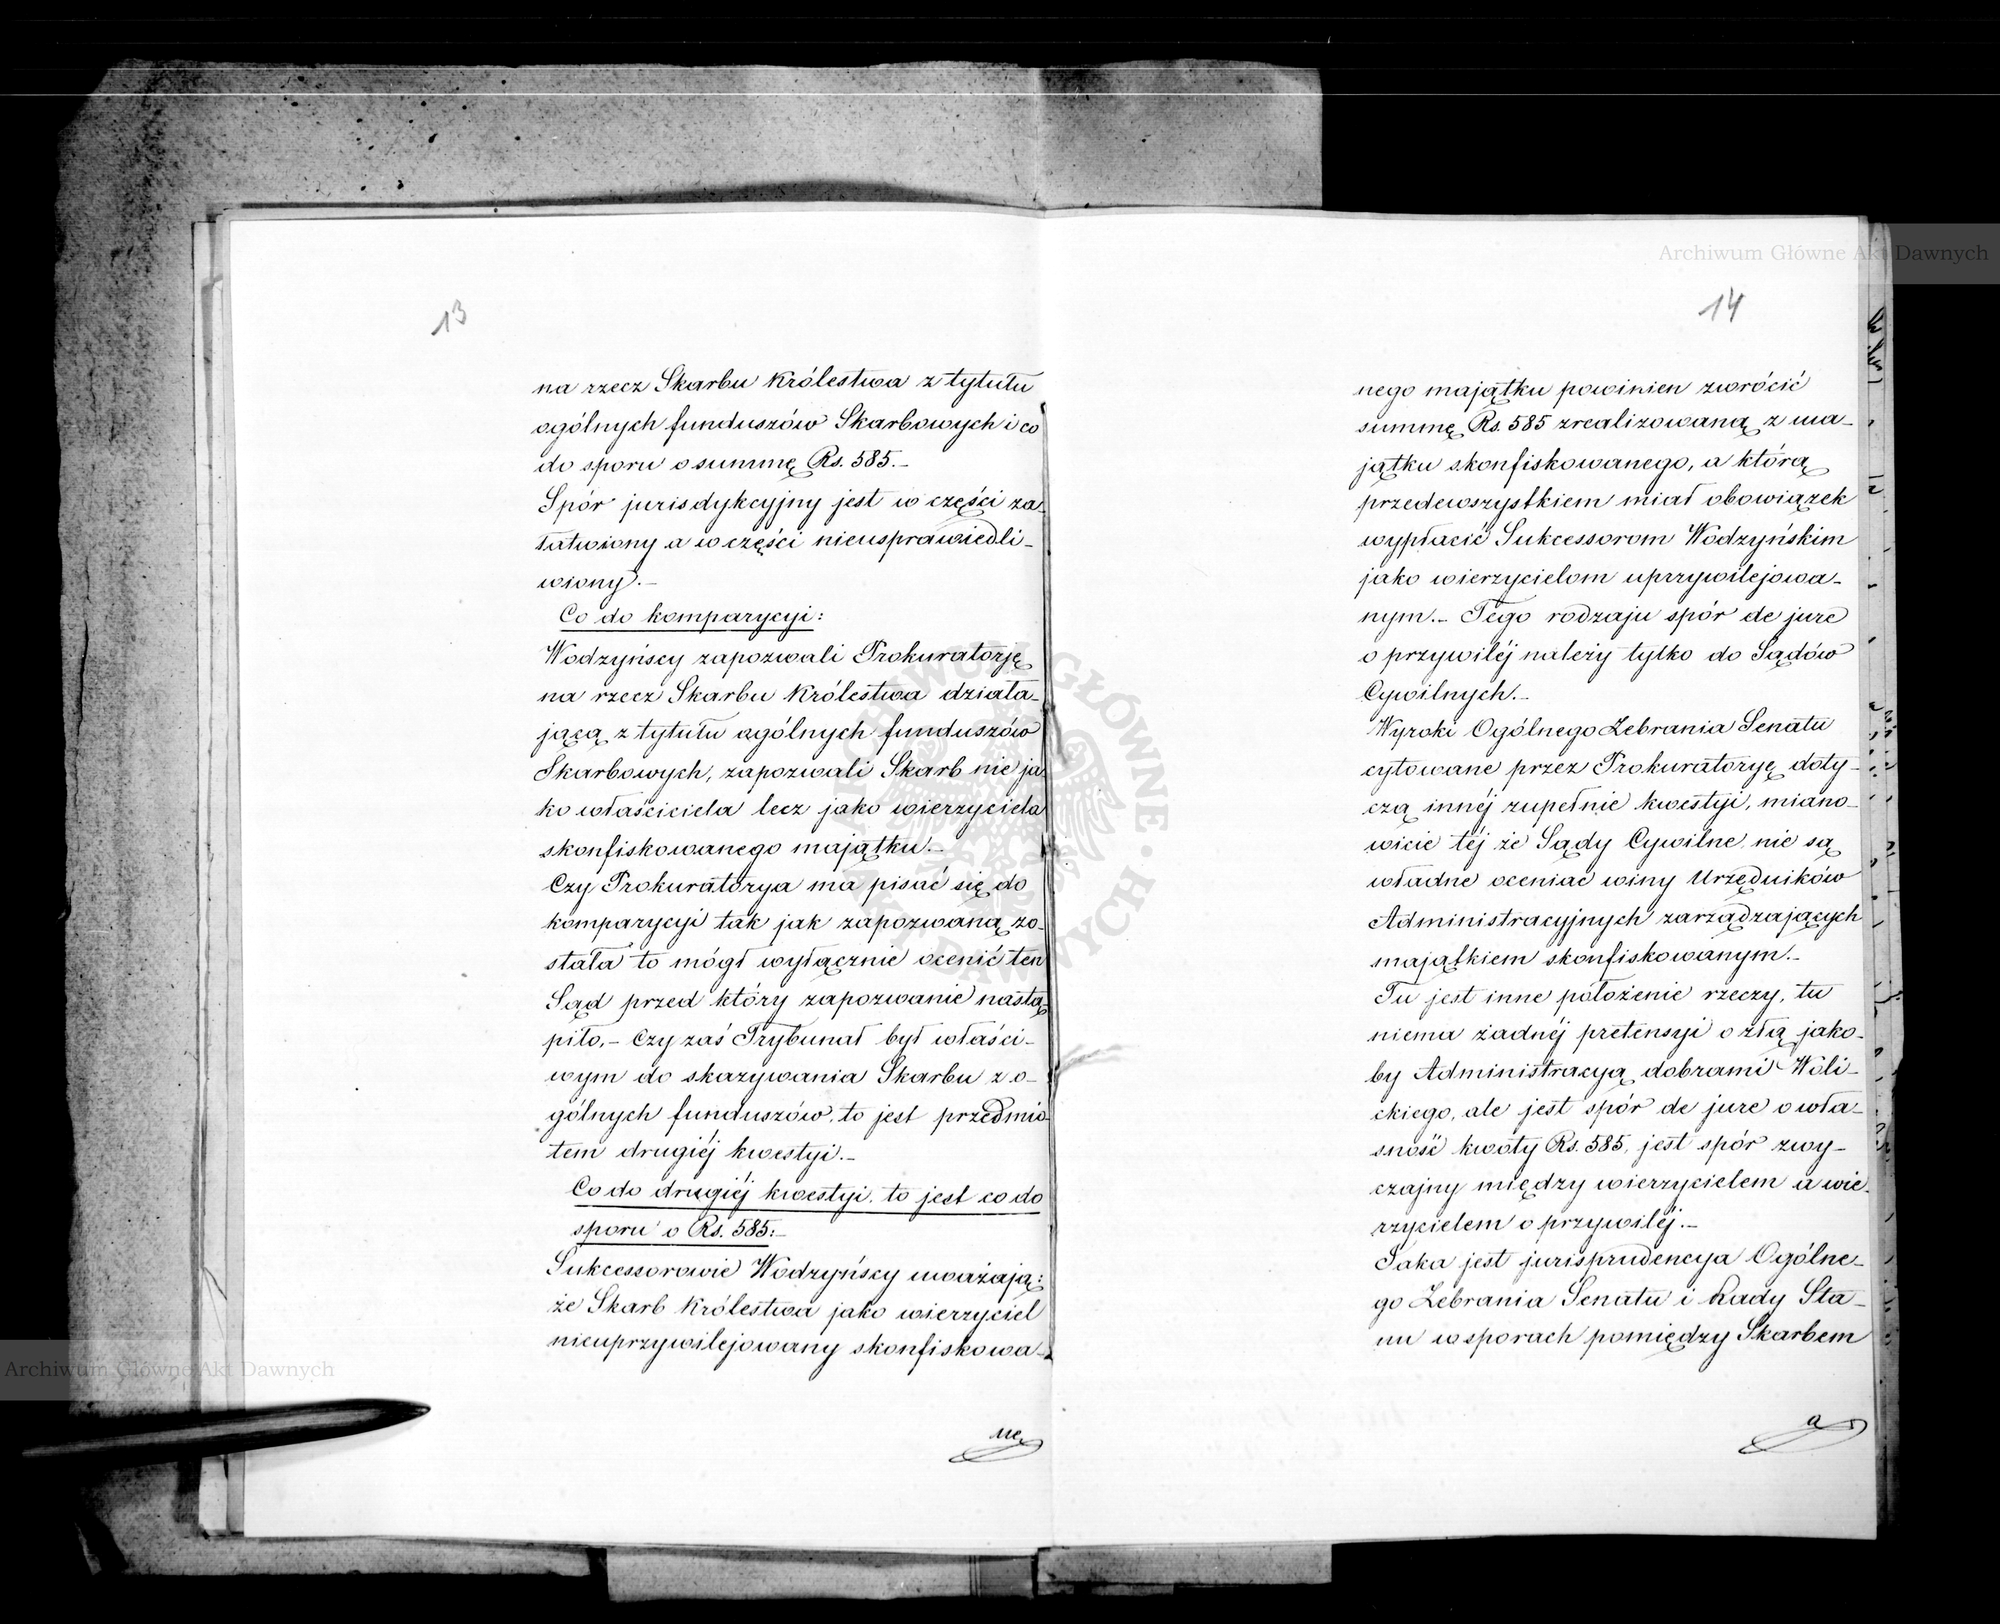 13
na rzecz Skarbu Królestwa z tytułu
ogólnych funduszów Skarbowych i co
do sporu o summę Rs. 585.–
Spór jurisdykcyjny jest w części za
łatwiony a w części nieusprawiedli–
wiony.–
Co do komparycyi:
Wodzyńscy zapozwali Prokuratorję
na rzecz Skarbu Królestwa działa–
jącą z tytułu ogólnych funduszów
Skarbowych, zapozwali Skarb nie ja
ko właściciela lecz jako wierzyciela
skonfiskowanego majątku.–
Czy Prokuratorya ma pisać się do
komparycyi tak jak zapozwaną zo–
stała to mógł wyłącznie ocenić ten
Sąd przed który zapozwanie nastą
piło.– Czy zaś Trybunał był właści–
wym do skazywania Skarbu z o–
gólnych funduszów, to jest przedmio–
tem drugiéj kwestyi.–
Co do drugiéj kwestyi, to jest co do
sporu o Rs. 585:–
Sukcessorowie Wodzyńscy uważają:
że Skarb Królestwa jako wierzyciel
nieuprzywilejowany skonfiskowa–
ne
14
nego majątku powinien zwrócić
summę Rs. 585 zrealizowaną z ma–
jątku skonfiskowanego, a którą
przedewszystkiem miał obowiązek
wypłacić Sukcessorom Wodzyńskim
jako wierzycielom uprzywilejowa–
nym.– Tego rodzaju spór de jure
o przywiléj należy tylko do Sądów
Cywilnych.–
Wyroki Ogólnego Zebrania Senatu
cytowane przez Prokuratoryę doty–
czą innéj zupełnie kwestyi, miano–
wicie téj że Sądy Cywilne nie są
władne oceniać winy Urzędników
Administracyjnych zarządzających
majątkiem skonfiskowanym.–
Tu jest inne położenie rzeczy, tu
niema żadnéj pretensyi o złą jako–
by Administracyą dobrami Woli–
ckiego, ale jest spór de jure o wła–
sność kwoty Rs. 585, jest spór zwy–
czajny między wierzycielem a wie–
rzycielem o przywiléj.–
Taka jest jurisprudencya Ogólne–
go Zebrania Senatu i Rady Sta–
nu w sporach pomiędzy Skarbem
a
Archiwum Główne Akt Dawnych
Archiwum Główne Akt Dawnych